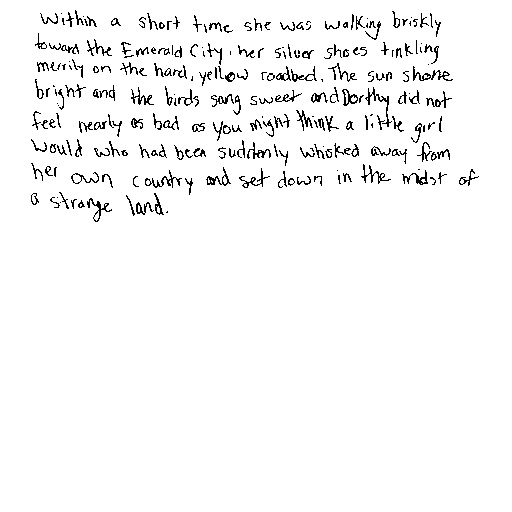 Within a short time she was walking briskly
toward the Emerald City, her silver shoes tinkling
merrily on the hard, yellow roadbed. The sun shone
bright and the birds sang sweet and Dorthy did not
feel nearly as bad as you might think a little girl
would who had been suddenly whisked away from
her own country and set down in the midst of
a strange land.